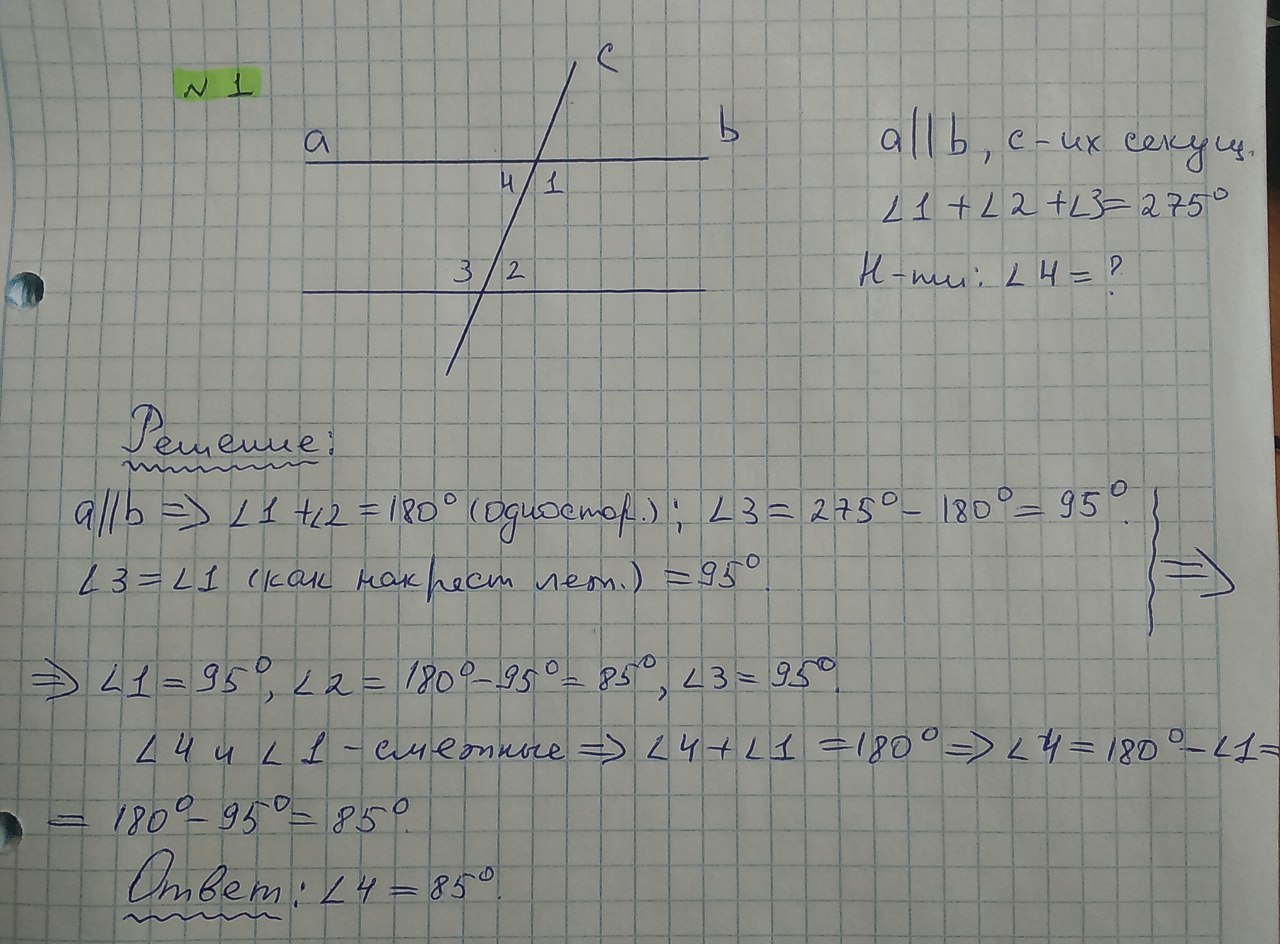 N 1
c
a
b
4 1
3 2
a||b, c-их секущ.
∠1 + ∠2 + ∠3 = 275°
Н-ти: ∠4 = ?
Решение:
a||b => ∠1 + ∠2 = 180° (одностор.); ∠3 = 275° - 180° = 95°.
∠3 = ∠1 (как накрест леж.) = 95°.
=>
=> ∠1 = 95°, ∠2 = 180° - 95° = 85°, ∠3 = 95°.
∠4 и ∠1 - смежные => ∠4 + ∠1 = 180° => ∠4 = 180° - ∠1 =
= 180° - 95° = 85°.
Ответ: ∠4 = 85°.